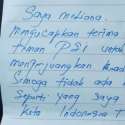 Saya meliana.
Mengucapkan terima
timan PSI untuk
memperjuangkan kead
Semoga tidak ada
Seperti yang saya
Kita Indonesia T